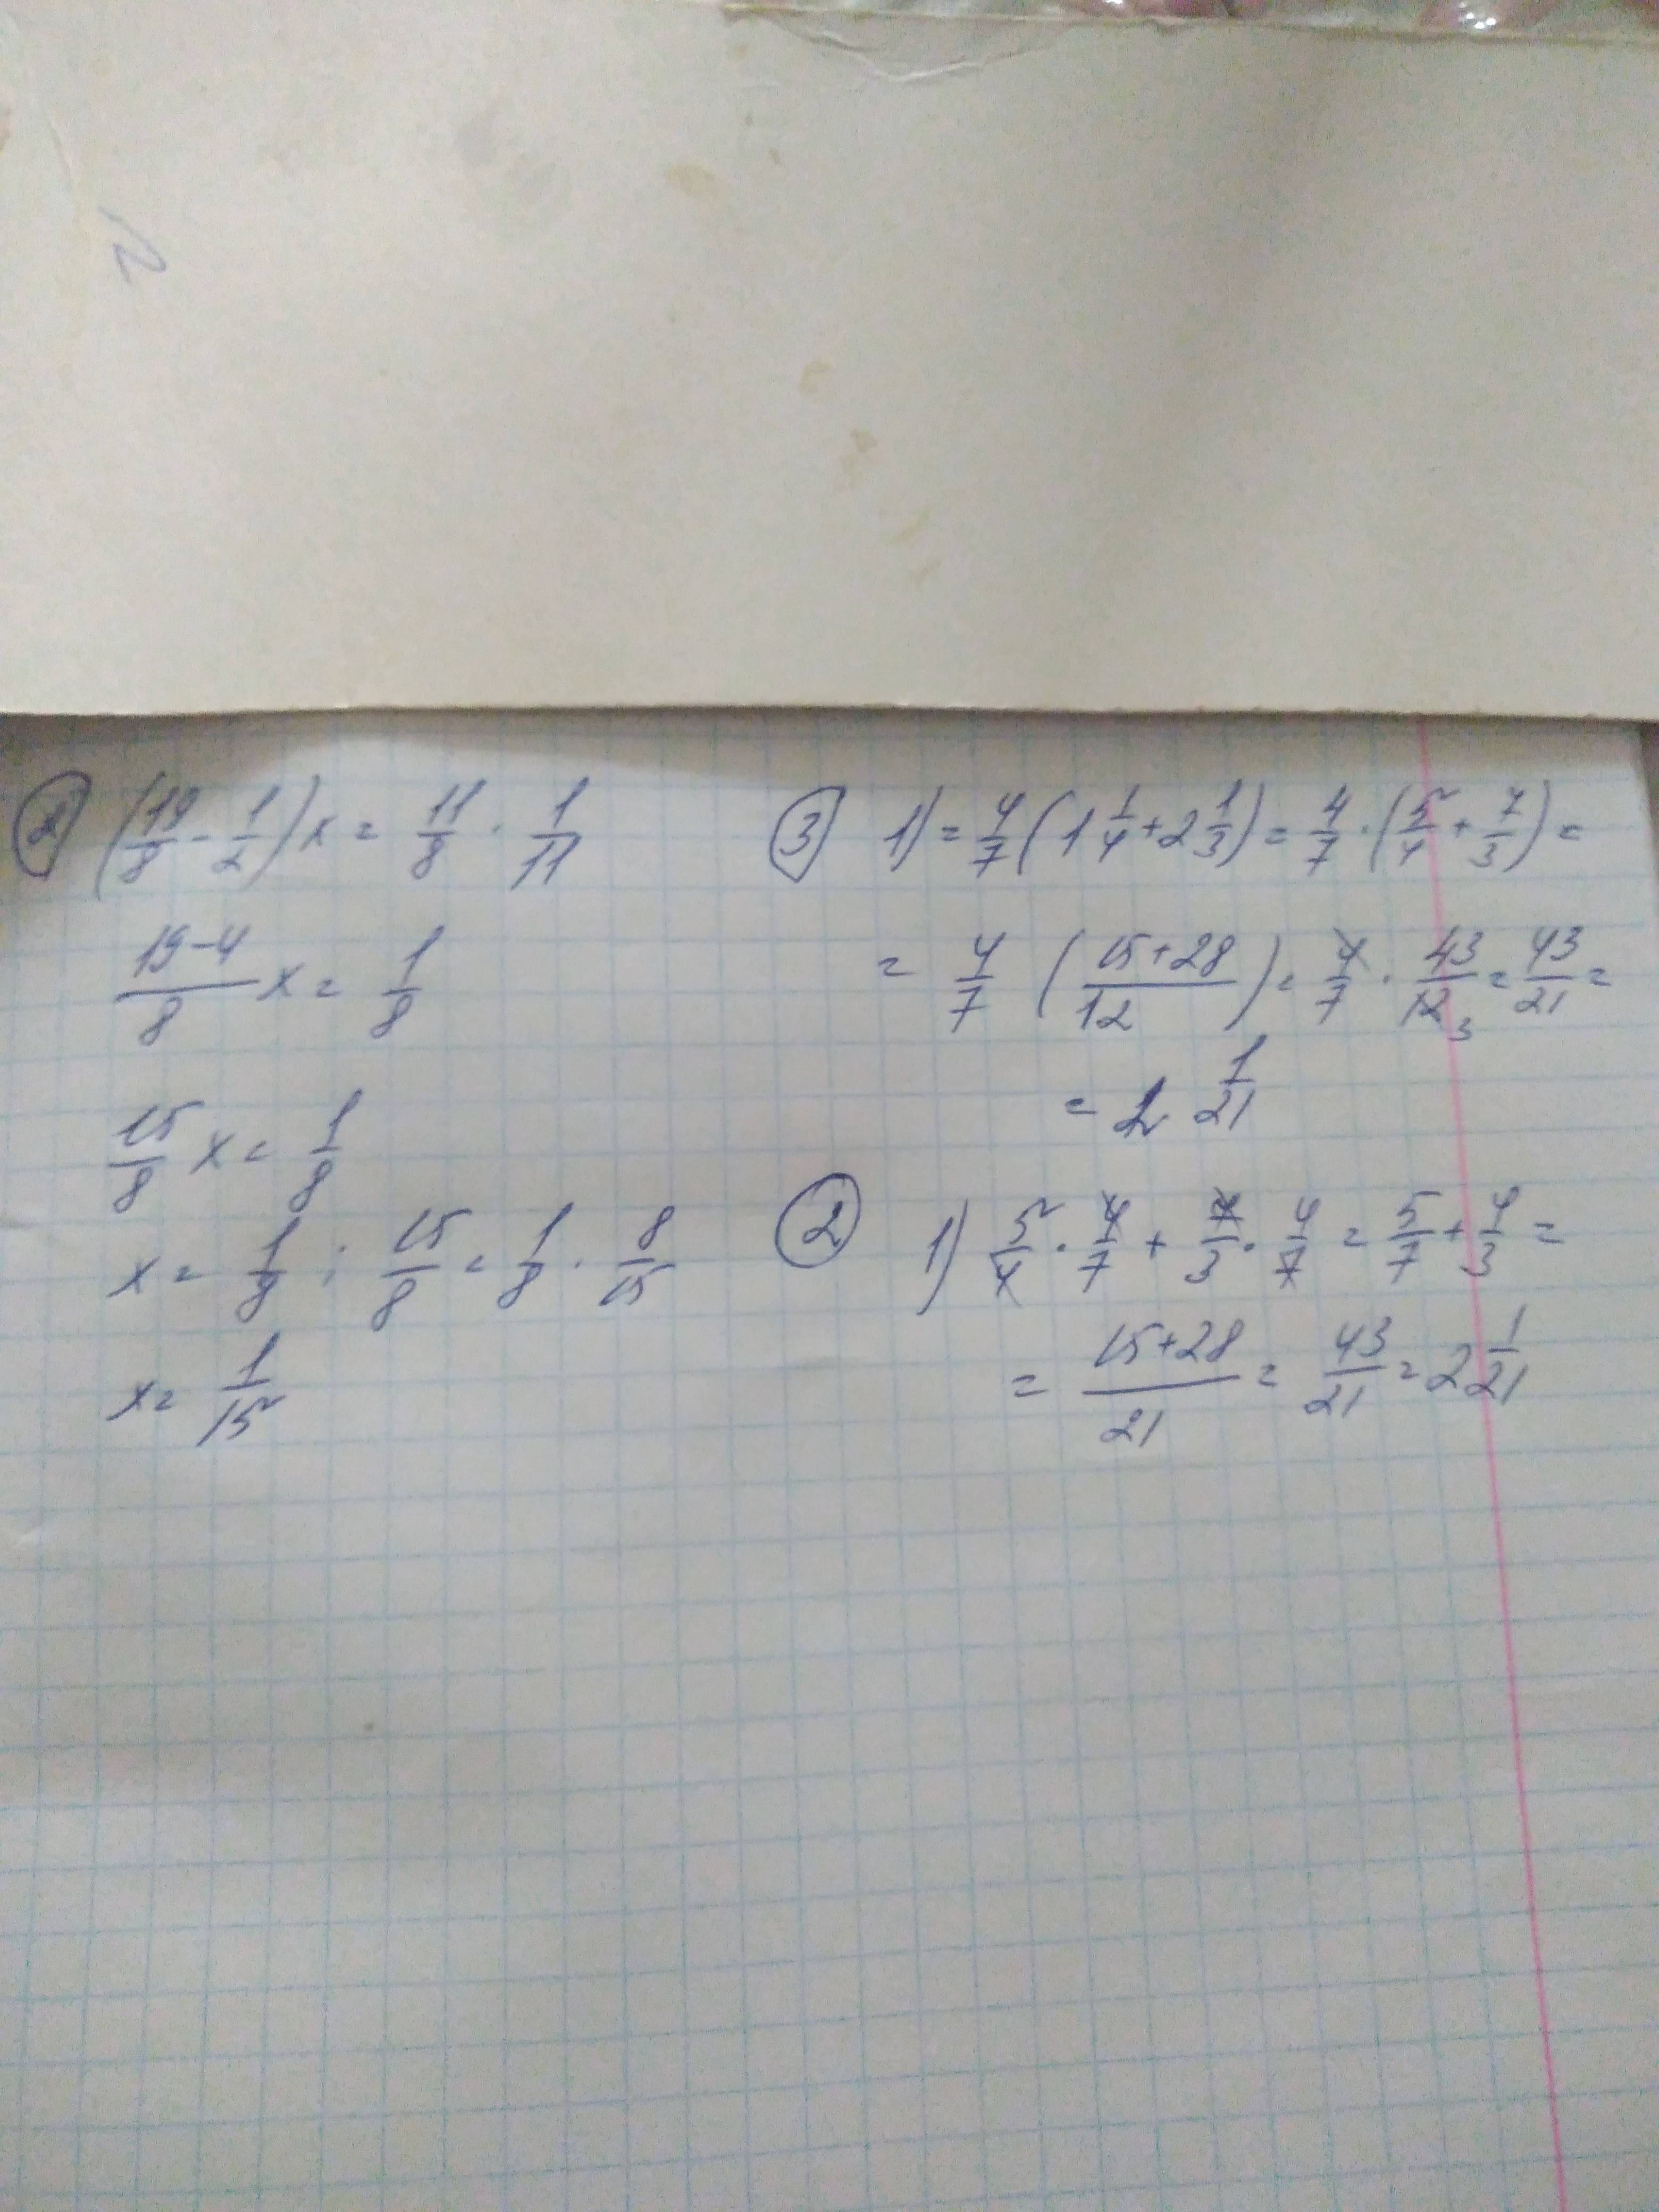 ② (19/8 - 1/2) x = 11/8 · 1/11
19-4/8 x = 1/8
15/8 x = 1/8
x = 1/8 : 15/8 = 1/8 · 8/15
x = 1/15
③ 1) = 4/7 (1 1/4 + 2 1/3) = 4/7 · (5/4 + 7/3) =
= 4/7 (15+28/12) = 4/7 · 43/12 3 = 43/21 =
= 2 1/21
② 1) 5/4 · 4/7 + 7/3 · 4/7 = 5/7 + 4/3 =
= 15+28/21 = 43/21 = 2 1/21